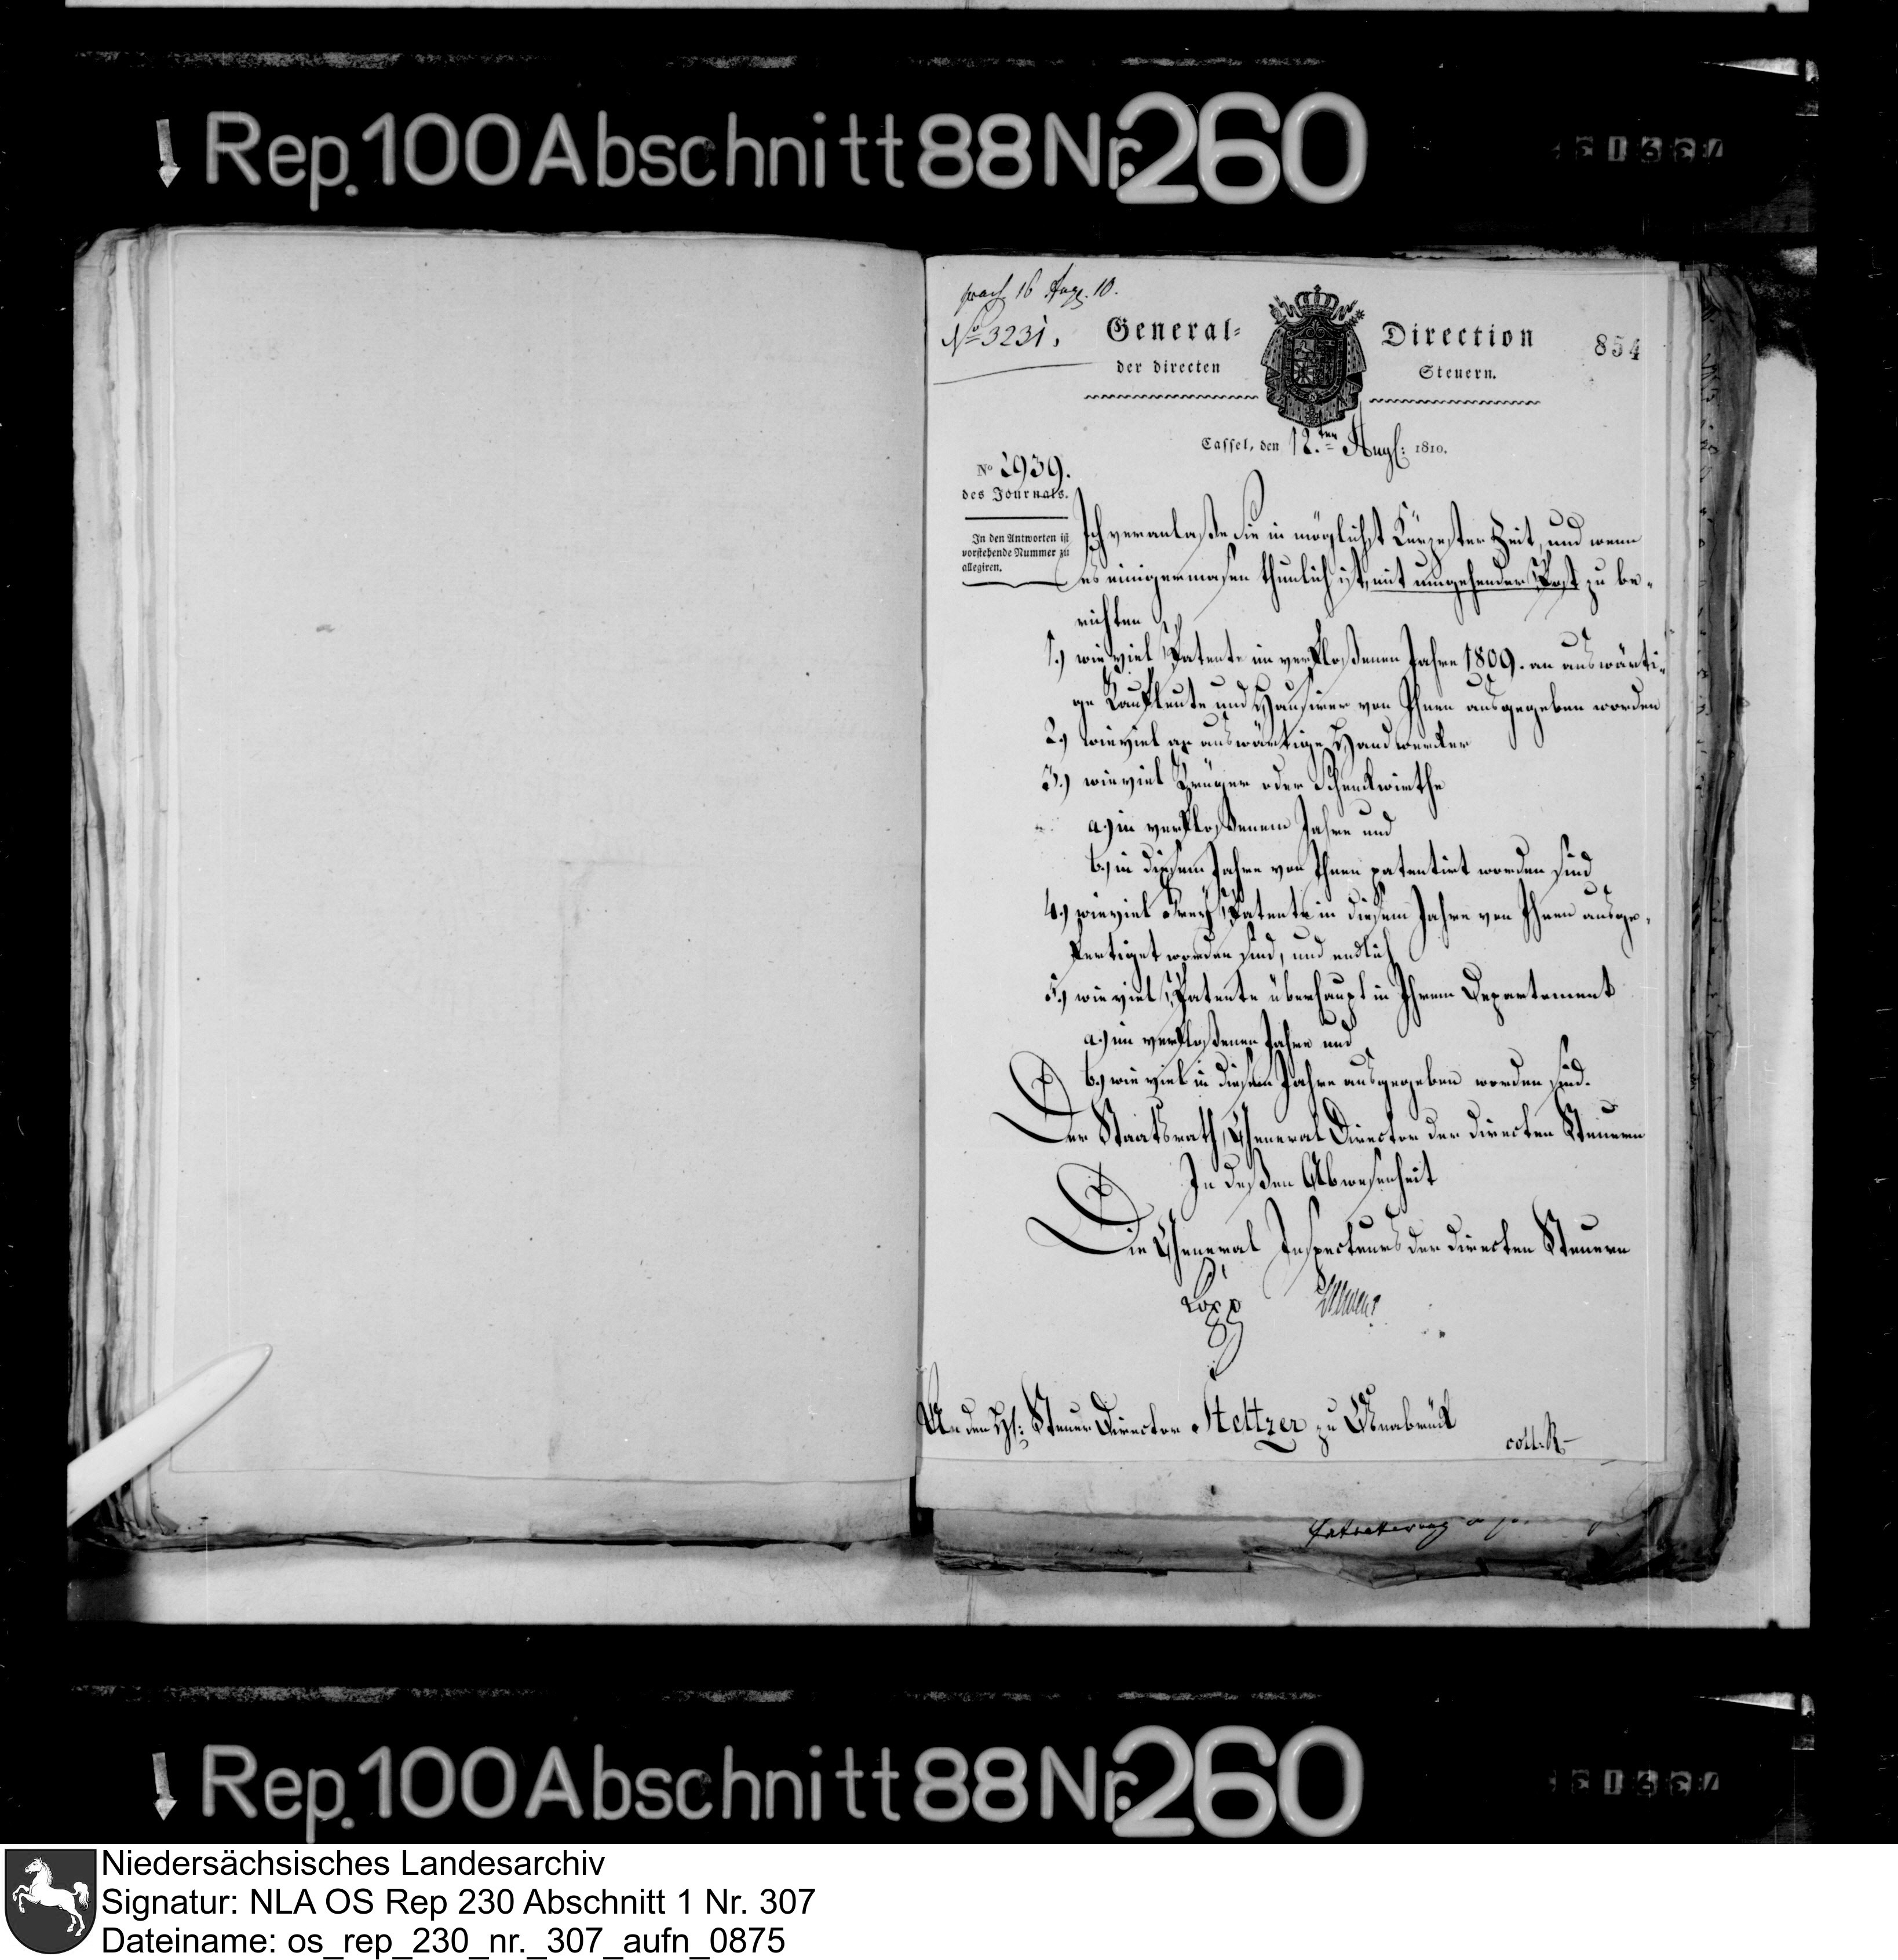 Rep. 100 Abschnitt 88 Nr. 260
16 Aug. 10.
No 3231.
General- Direction
der directen Steuern.
854
Cassel, den 12.ten Aug: 1810.
No 2939.
des Journals.
In den Antworten ist
vorstehende Nummer zu
allegiren.
Ich veranlaße Sie in möglichst kürzester Zeit, und wenn
es einigermasen thunlich ist, mit umgehender Post zu be-
richten
1.) wie viel Patente im verfloßenen Jahre 1809. an auswärti-
ge Kaufleute und Hausirer von Ihnen ausgegeben worden
2.) wieviel an auswärtige Handwerker
3.) wieviel Krüger oder Schenkwirthe
a.) im verfloßenem Jahre und
b.) in diesem Jahre von Ihnen patentirt worden sind
4.) wieviel Frey Patente in diesem Jahre von Ihnen ausge-
fertiget worden sind, und endlich
5.) wie viel Patente überhaupt in Ihrem Departement
a.) im verfloßenen Jahre und
b.) wie viel in diesem Jahre ausgegeben worden sind.
Der Staatsrath, General Director der directen Steuern
In deßen Abwesenheit
Die General Inspecteurs der directen Steuern
An den H: Steuer Director Steltzer zu Osnabrück
coll. R
Rep. 100 Abschnitt 88 Nr. 260
Niedersächsisches Landesarchiv
Signatur: NLA OS Rep 230 Abschnitt 1 Nr. 307
Dateiname: os_rep_230_nr._307_aufn_0875